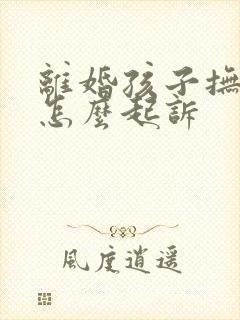 離婚孩子撫
怎麼起訴
風度逍遥